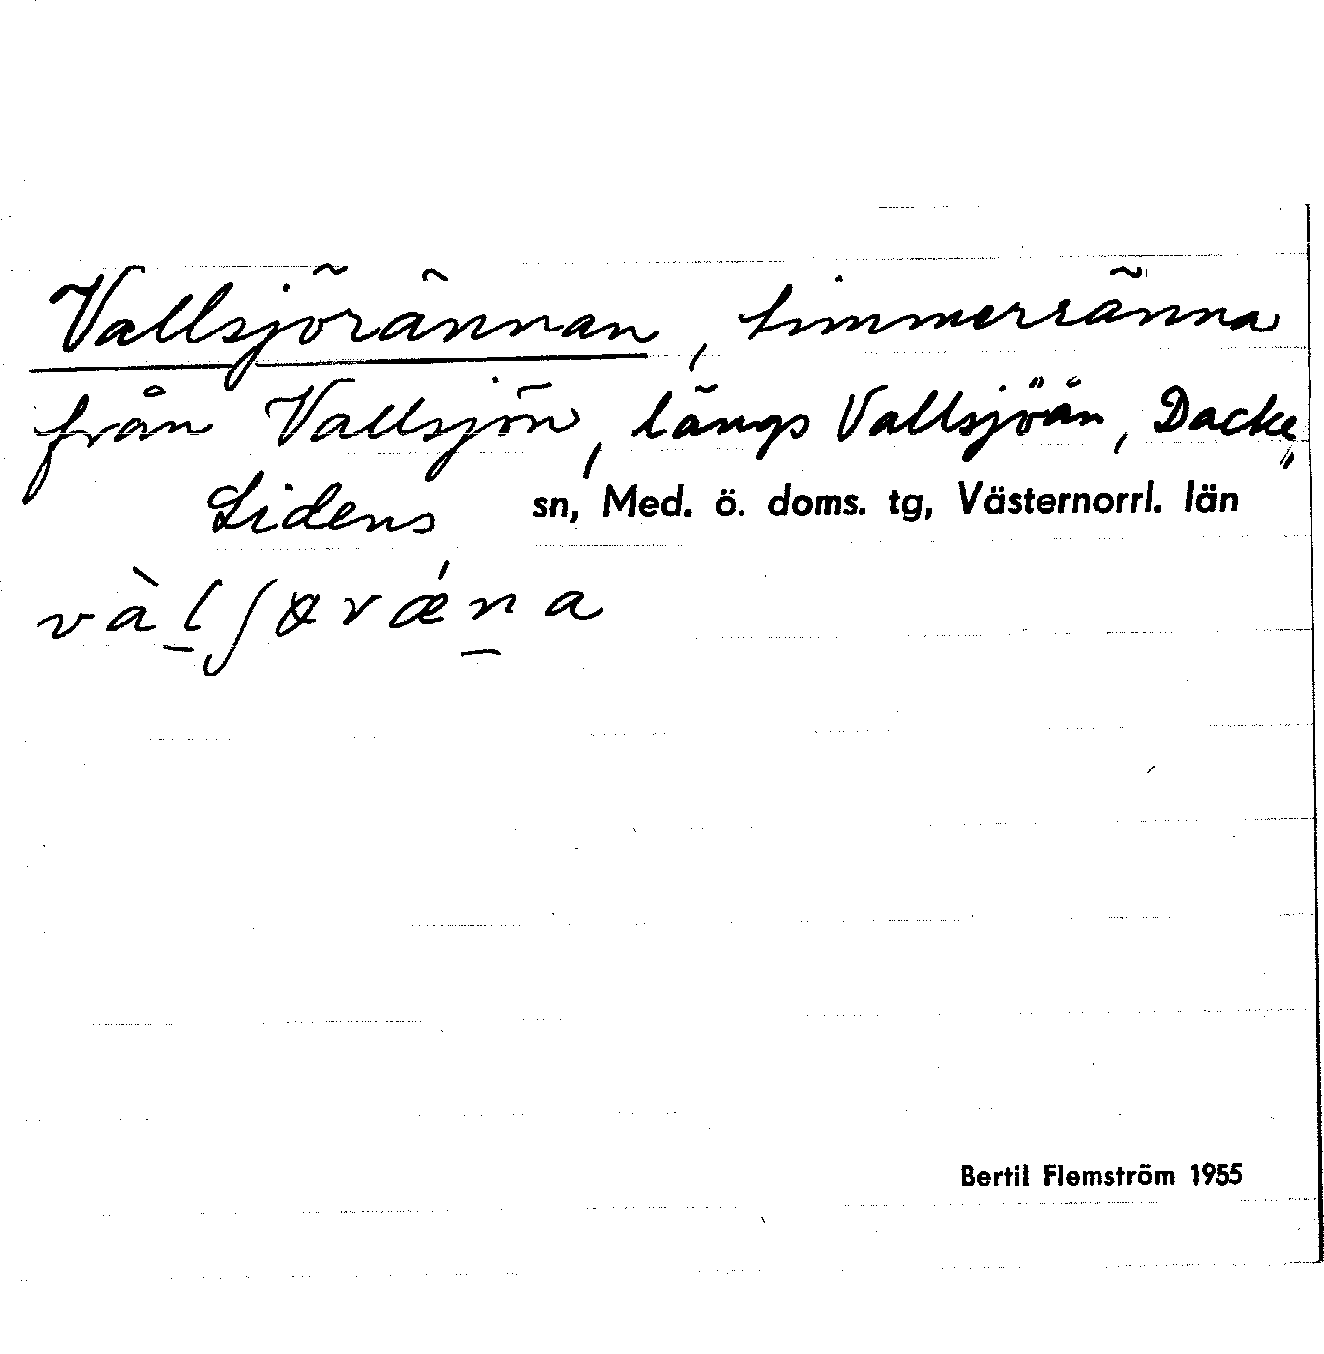 Vallsjörännan, timmerränna
från Vallsjön, längs Vallsjöån, Dacke,,
Lidens sn, Med. ö. doms. tg, Västernorrl. län
Bertil Flemström 1955